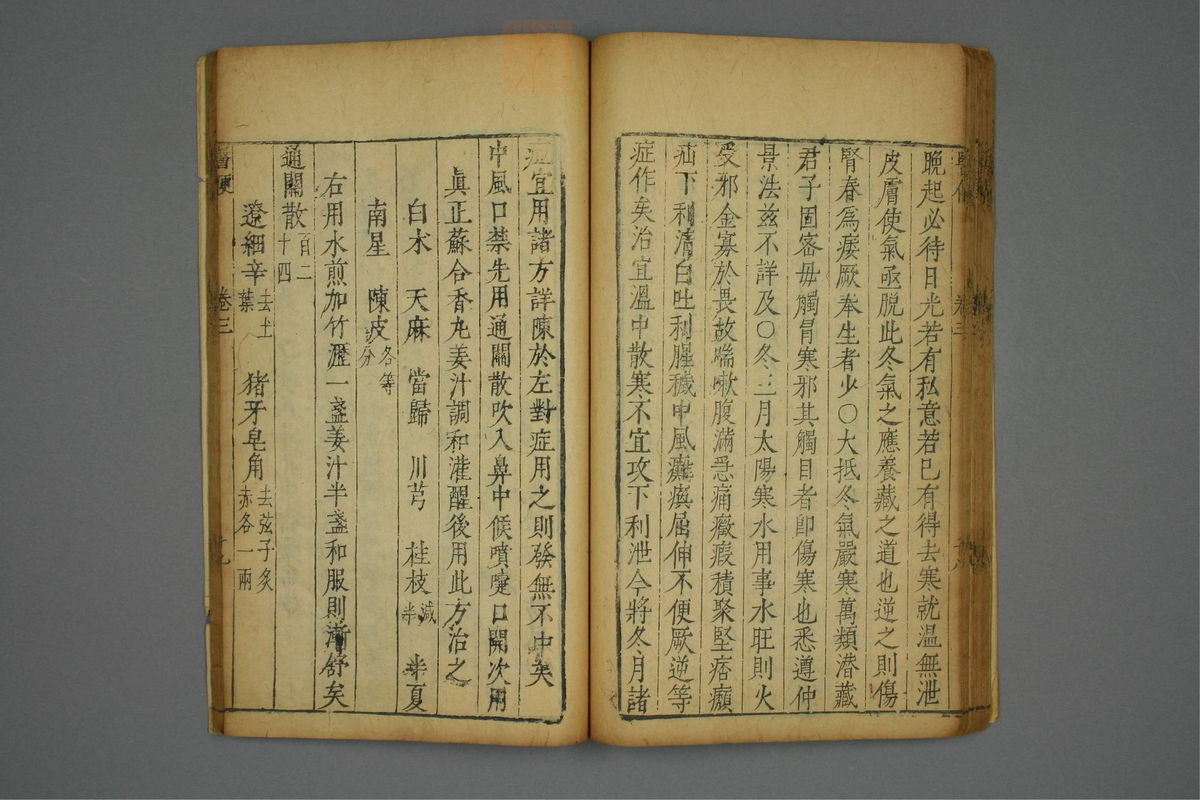 晚起必待日光若有私意若已有得去寒就温無泄
皮膚使氣亟脱此冬氣之應養藏之道也逆之則傷
腎春爲痿厥奉生者少〇大抵冬氣嚴寒萬類潜藏
君子固密毋觸冒寒邪其觸目者即傷寒也悉遵仲
景法兹不詳及〇冬三月太陽寒水用事水旺則火
受邪金寡於畏故喘嗽腹滿急痛癥瘕積聚堅痞癩
疝下利清白吐利腥穢中風癱瘓屈伸不便厥逆等
症作矣治宜溫中散寒不宜攻下利泄今將冬月諸
症宜用諸方詳陳於左對症用之則發無不中矣
中風口禁先用通關散吹入鼻中候噴嚏口開次用
眞正蘇合香丸姜汁調和灌醒後用此方治之
白朮 天麻 當歸 川芎 桂枝減半 半夏
南星 陳皮各等分
右用水煎加竹瀝一盞姜汁半盞和服則漸舒矣
通關散一百二十四
遼細辛去土葉 猪牙皂角去弦子炙赤各一兩
醫便 卷三 十九